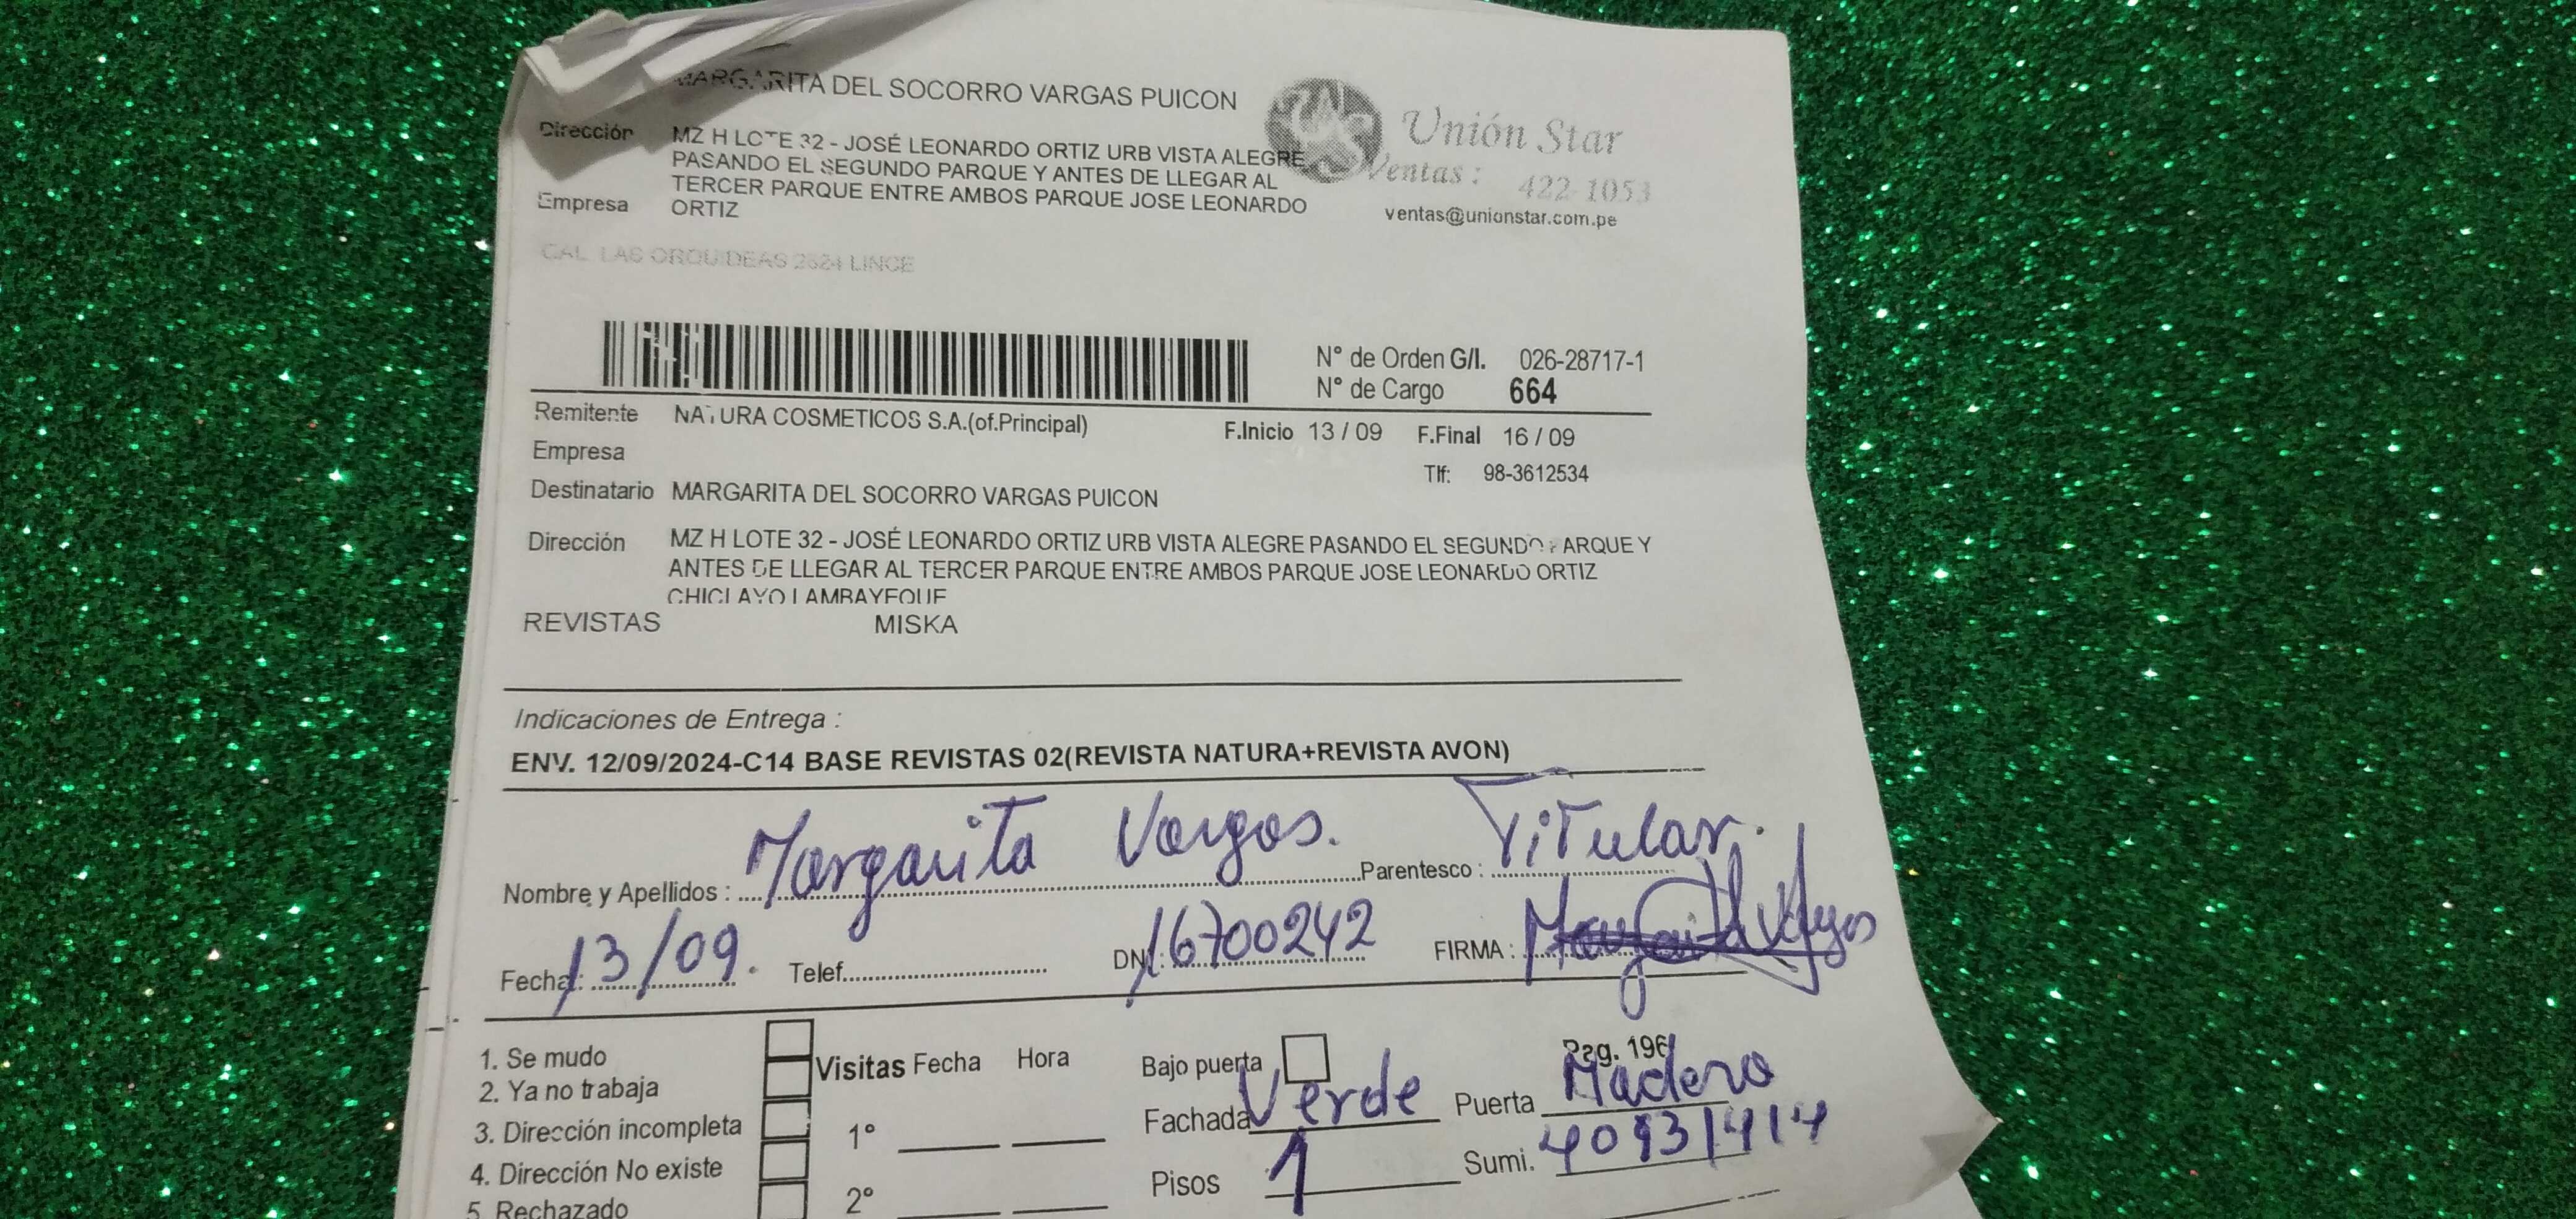 MARGARITA DEL SOCORRO VARGAS PUICON
Unión Star
Ventas : 422-1053
ventas@unionstar.com.pe
Dirección MZ H LOTE 32 - JOSÉ LEONARDO ORTIZ URB VISTA ALEGRE
PASANDO EL SEGUNDO PARQUE Y ANTES DE LLEGAR AL
TERCER PARQUE ENTRE AMBOS PARQUE JOSE LEONARDO
Empresa ORTIZ
CAL LAS ORQUIDEAS 2624 LINCE
N° de Orden G/I. 026-28717-1
N° de Cargo 664
Remitente NATURA COSMETICOS S.A.(of.Principal)
F.Inicio 13 / 09 F.Final 16 / 09
Empresa
Tlf: 98-3612534
Destinatario MARGARITA DEL SOCORRO VARGAS PUICON
Dirección MZ H LOTE 32 - JOSÉ LEONARDO ORTIZ URB VISTA ALEGRE PASANDO EL SEGUNDO PARQUE Y
ANTES DE LLEGAR AL TERCER PARQUE ENTRE AMBOS PARQUE JOSE LEONARDO ORTIZ
CHICLAYO LAMBAYEQUE
REVISTAS MISKA
Indicaciones de Entrega :
ENV. 12/09/2024-C14 BASE REVISTAS 02(REVISTA NATURA+REVISTA AVON)
Nombre y Apellidos : Margarita Vargas. Parentesco : Titular.
Fecha: 13/09. Telef. DNI: 16700242 FIRMA : Margarita Vargas
1. Se mudo
2. Ya no trabaja
3. Dirección incompleta
4. Dirección No existe
5. Rechazado
Visitas Fecha Hora
1°
2°
Bajo puerta Pag. 196
Fachada Verde Puerta Madera
Pisos 1 Sumi.